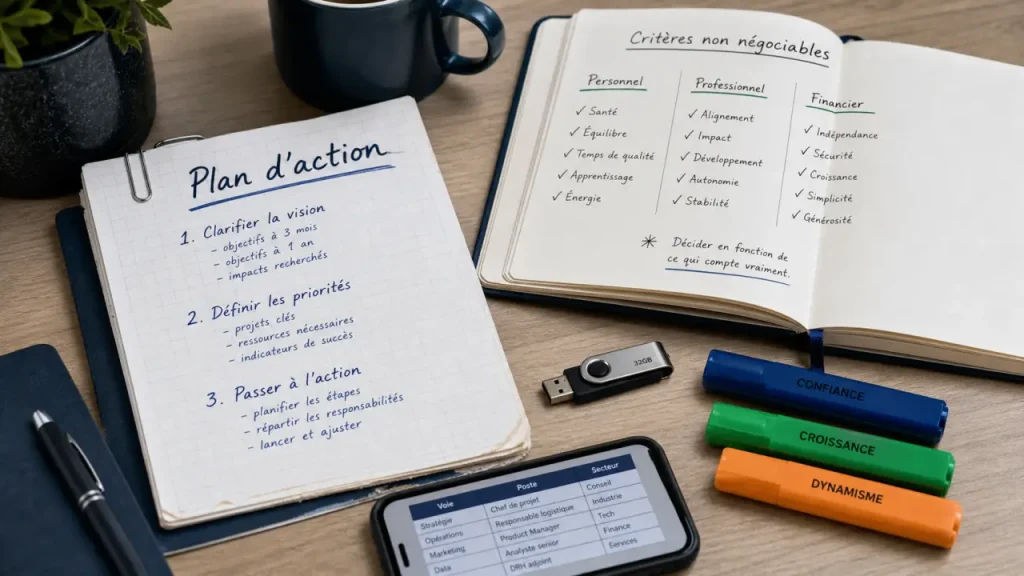 Plan d'action
1. Clarifier la vision
- objectifs à 3 mois
- objectifs à 1 an
- impacts recherchés
2. Définir les priorités
- projets clés
- ressources nécessaires
- indicateurs de succès
3. Passer à l'action
- planifier les étapes
- répartir les responsabilités
- lancer et ajuster
Critères non négociables
Personnel
✓ Santé
✓ Équilibre
✓ Temps de qualité
✓ Apprentissage
✓ Énergie
Professionnel
✓ Alignement
✓ Impact
✓ Développement
✓ Autonomie
✓ Stabilité
Financier
✓ Indépendance
✓ Sécurité
✓ Croissance
✓ Simplicité
✓ Générosité
* Décider en fonction de
ce qui compte vraiment.
32GB
CONFIANCE
CROISSANCE
DYNAMISME
Voie Poste Secteur
Stratégie Chef de projet Conseil
Opérations Responsable logistique Industrie
Marketing Product Manager Tech
Data Analyste senior Finance
DRH adjoint Services